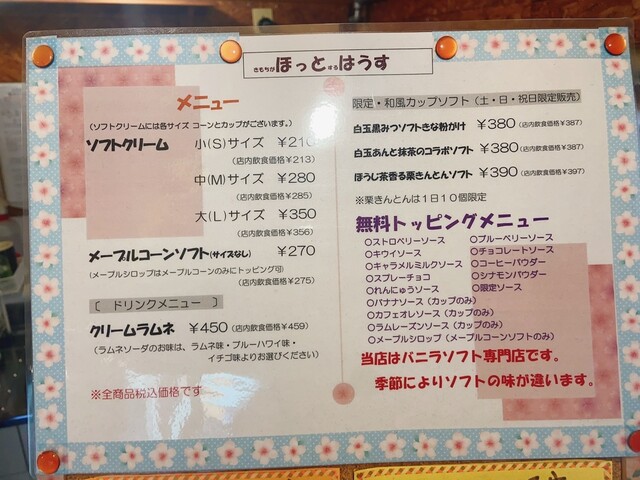 きもちが ほっと する はうす
メニュー
(ソフトクリームには各サイズ コーンとカップがございます。)
ソフトクリーム 小(S)サイズ ¥210
(店内飲食価格¥213)
中(M)サイズ ¥280
(店内飲食価格¥285)
大(L)サイズ ¥350
(店内飲食価格¥356)
メープルコーンソフト(サイズなし) ¥270
(メープルシロップはメープルコーンのみにトッピング可)
(店内飲食価格¥275)
〔 ドリンクメニュー 〕
クリームラムネ ¥450(店内飲食価格¥459)
(ラムネソーダのお味は、ラムネ味・ブルーハワイ味・
イチゴ味よりお選びください)
※全商品税込価格です
限定・和風カップソフト(土・日・祝日限定販売)
白玉黒みつソフトきな粉がけ ¥380(店内飲食価格¥387)
白玉あんと抹茶のコラボソフト ¥380(店内飲食価格¥387)
ほうじ茶香る栗きんとんソフト ¥390(店内飲食価格¥397)
※栗きんとんは1日10個限定
無料トッピングメニュー
○ストロベリーソース ○ブルーベリーソース
○キウイソース ○チョコレートソース
○キャラメルミルクソース ○コーヒーパウダー
○スプレーチョコ ○シナモンパウダー
○れんにゅうソース ○限定ソース
○バナナソース(カップのみ)
○カフェオレソース(カップのみ)
○ラムレーズンソース(カップのみ)
○メープルシロップ(メープルコーンソフトのみ)
当店はバニラソフト専門店です。
季節によりソフトの味が違います。